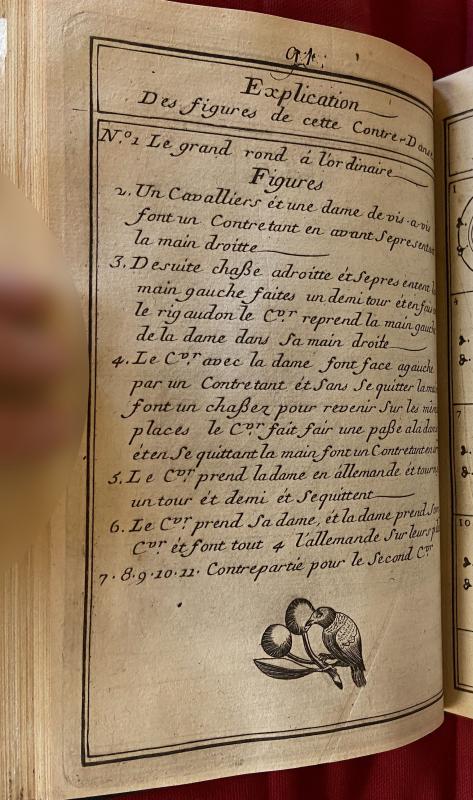 91.
Explication
Des figures de cette Contre-Danse
N.º1 Le grand rond á l'ordinaire
Figures
2. Un Cavalliers ét une dame de vis-a-vis
font un Contretant en avant Se presentant
la main droitte
3. De suite chaße adroitte ét Se pres entent la
main gauche faites un demi tour ét en fais
le rigaudon le C.vr reprend la main gauche
de la dame dans Sa main droite
4. Le C.vr avec la dame font face agauche
par un Contretant ét Sans Se quitter la main
font un chaßez pour revenir Sur les
places le C.vr fait fair une paße ala dame
ét en Se quittant la main font un Contretant en
5. Le C.vr prend la dame en állemande ét
un tour ét demi ét Se quittent
6. Le C.vr prend Sa dame, ét la dame prend Son
C.vr ét font tout 4 l'allemande Sur leurs
7. 8. 9. 10. 11. Contrepartié pour le Second C.vr
1
4
7
10